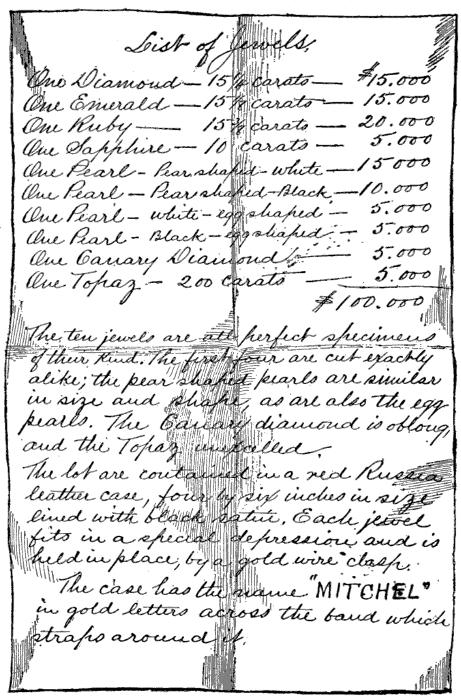 List of Jewels.
One Diamond — 15 1/8 carats — $15.000
One Emerald — 15 1/8 carats — 15.000
One Ruby — 15 1/8 carats — 20.000
One Sapphire — 10 carats — 5.000
One Pearl - Pear shaped - white — 15000
One Pearl - Pear shaped - Black — 10.000
One Pearl - white - egg shaped — 5.000
One Pearl - Black - egg shaped — 5.000
One Canary Diamond — 5.000
One Topaz - 200 carats — 5.000
$100.000
The ten jewels are all perfect specimens
of their kind. The first four are cut exactly
alike; the pear shaped pearls are similar
in size and shape, as are also the egg
pearls. The Canary diamond is oblong,
and the Topaz
The lot are contained in a red Russia
leather case, four by six inches in size
lined with black satin. Each jewel
fits in a special depression and is
held in place, by a gold wire clasp.
The case has the name "MITCHEL"
in gold letters across the band which
straps around it.